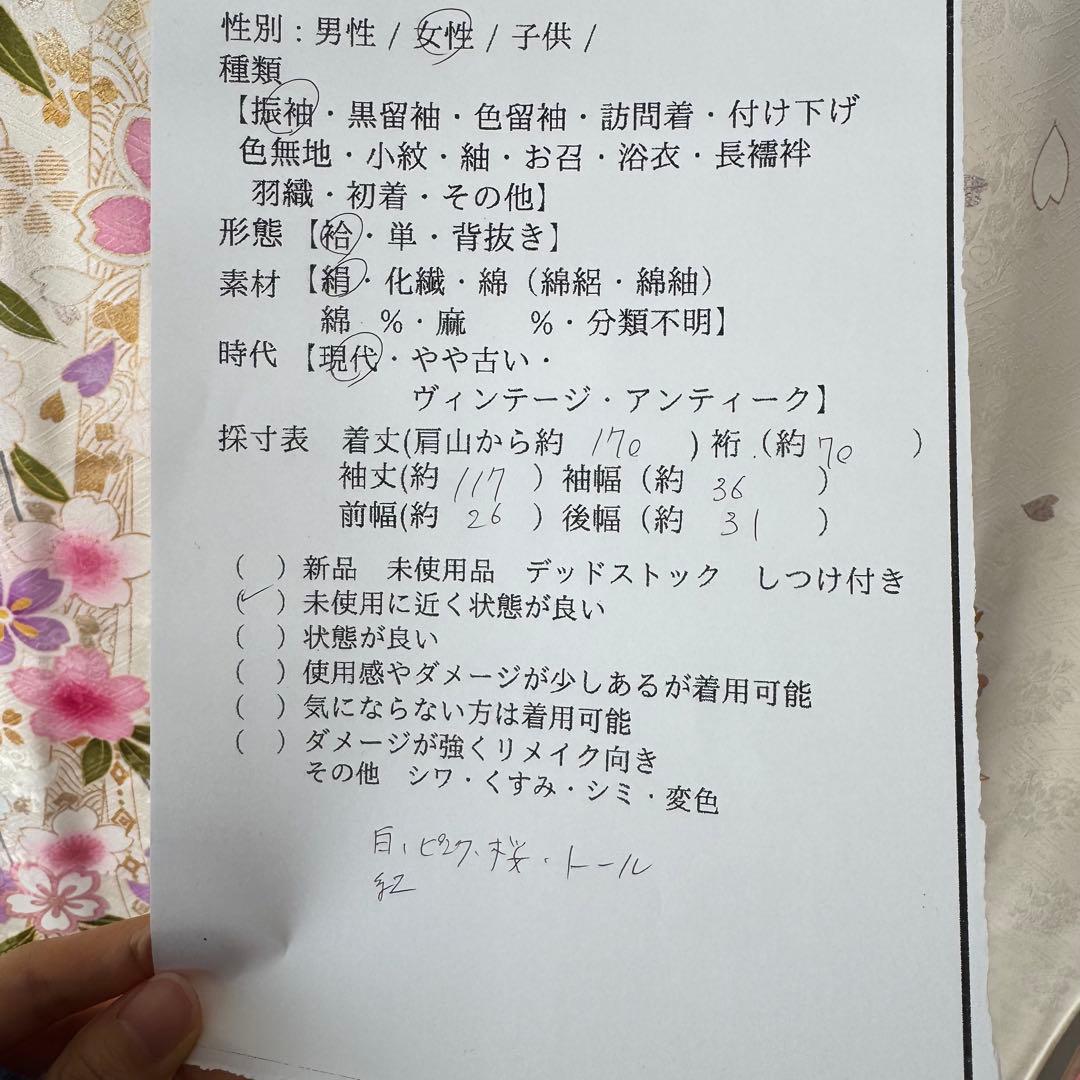 性別：男性 / 女性 / 子供 /
種類
【振袖・黒留袖・色留袖・訪問着・付け下げ
色無地・小紋・紬・お召・浴衣・長襦袢
羽織・初着・その他】
形態【袷・単・背抜き】
素材【絹・化繊・綿（綿絽・綿紬）
綿 %・麻 %・分類不明】
時代【現代・やや古い・
ヴィンテージ・アンティーク】
採寸表 着丈(肩山から約 170 ) 裄（約 70 ）
袖丈(約 117 ）袖幅（約 36 ）
前幅(約 26 ）後幅（約 31 ）
( ）新品 未使用品 デッドストック しつけ付き
(✓）未使用に近く状態が良い
( ）状態が良い
( ）使用感やダメージが少しあるが着用可能
( ）気にならない方は着用可能
( ）ダメージが強くリメイク向き
その他 シワ・くすみ・シミ・変色
白、ピンク、桜、トール
紅